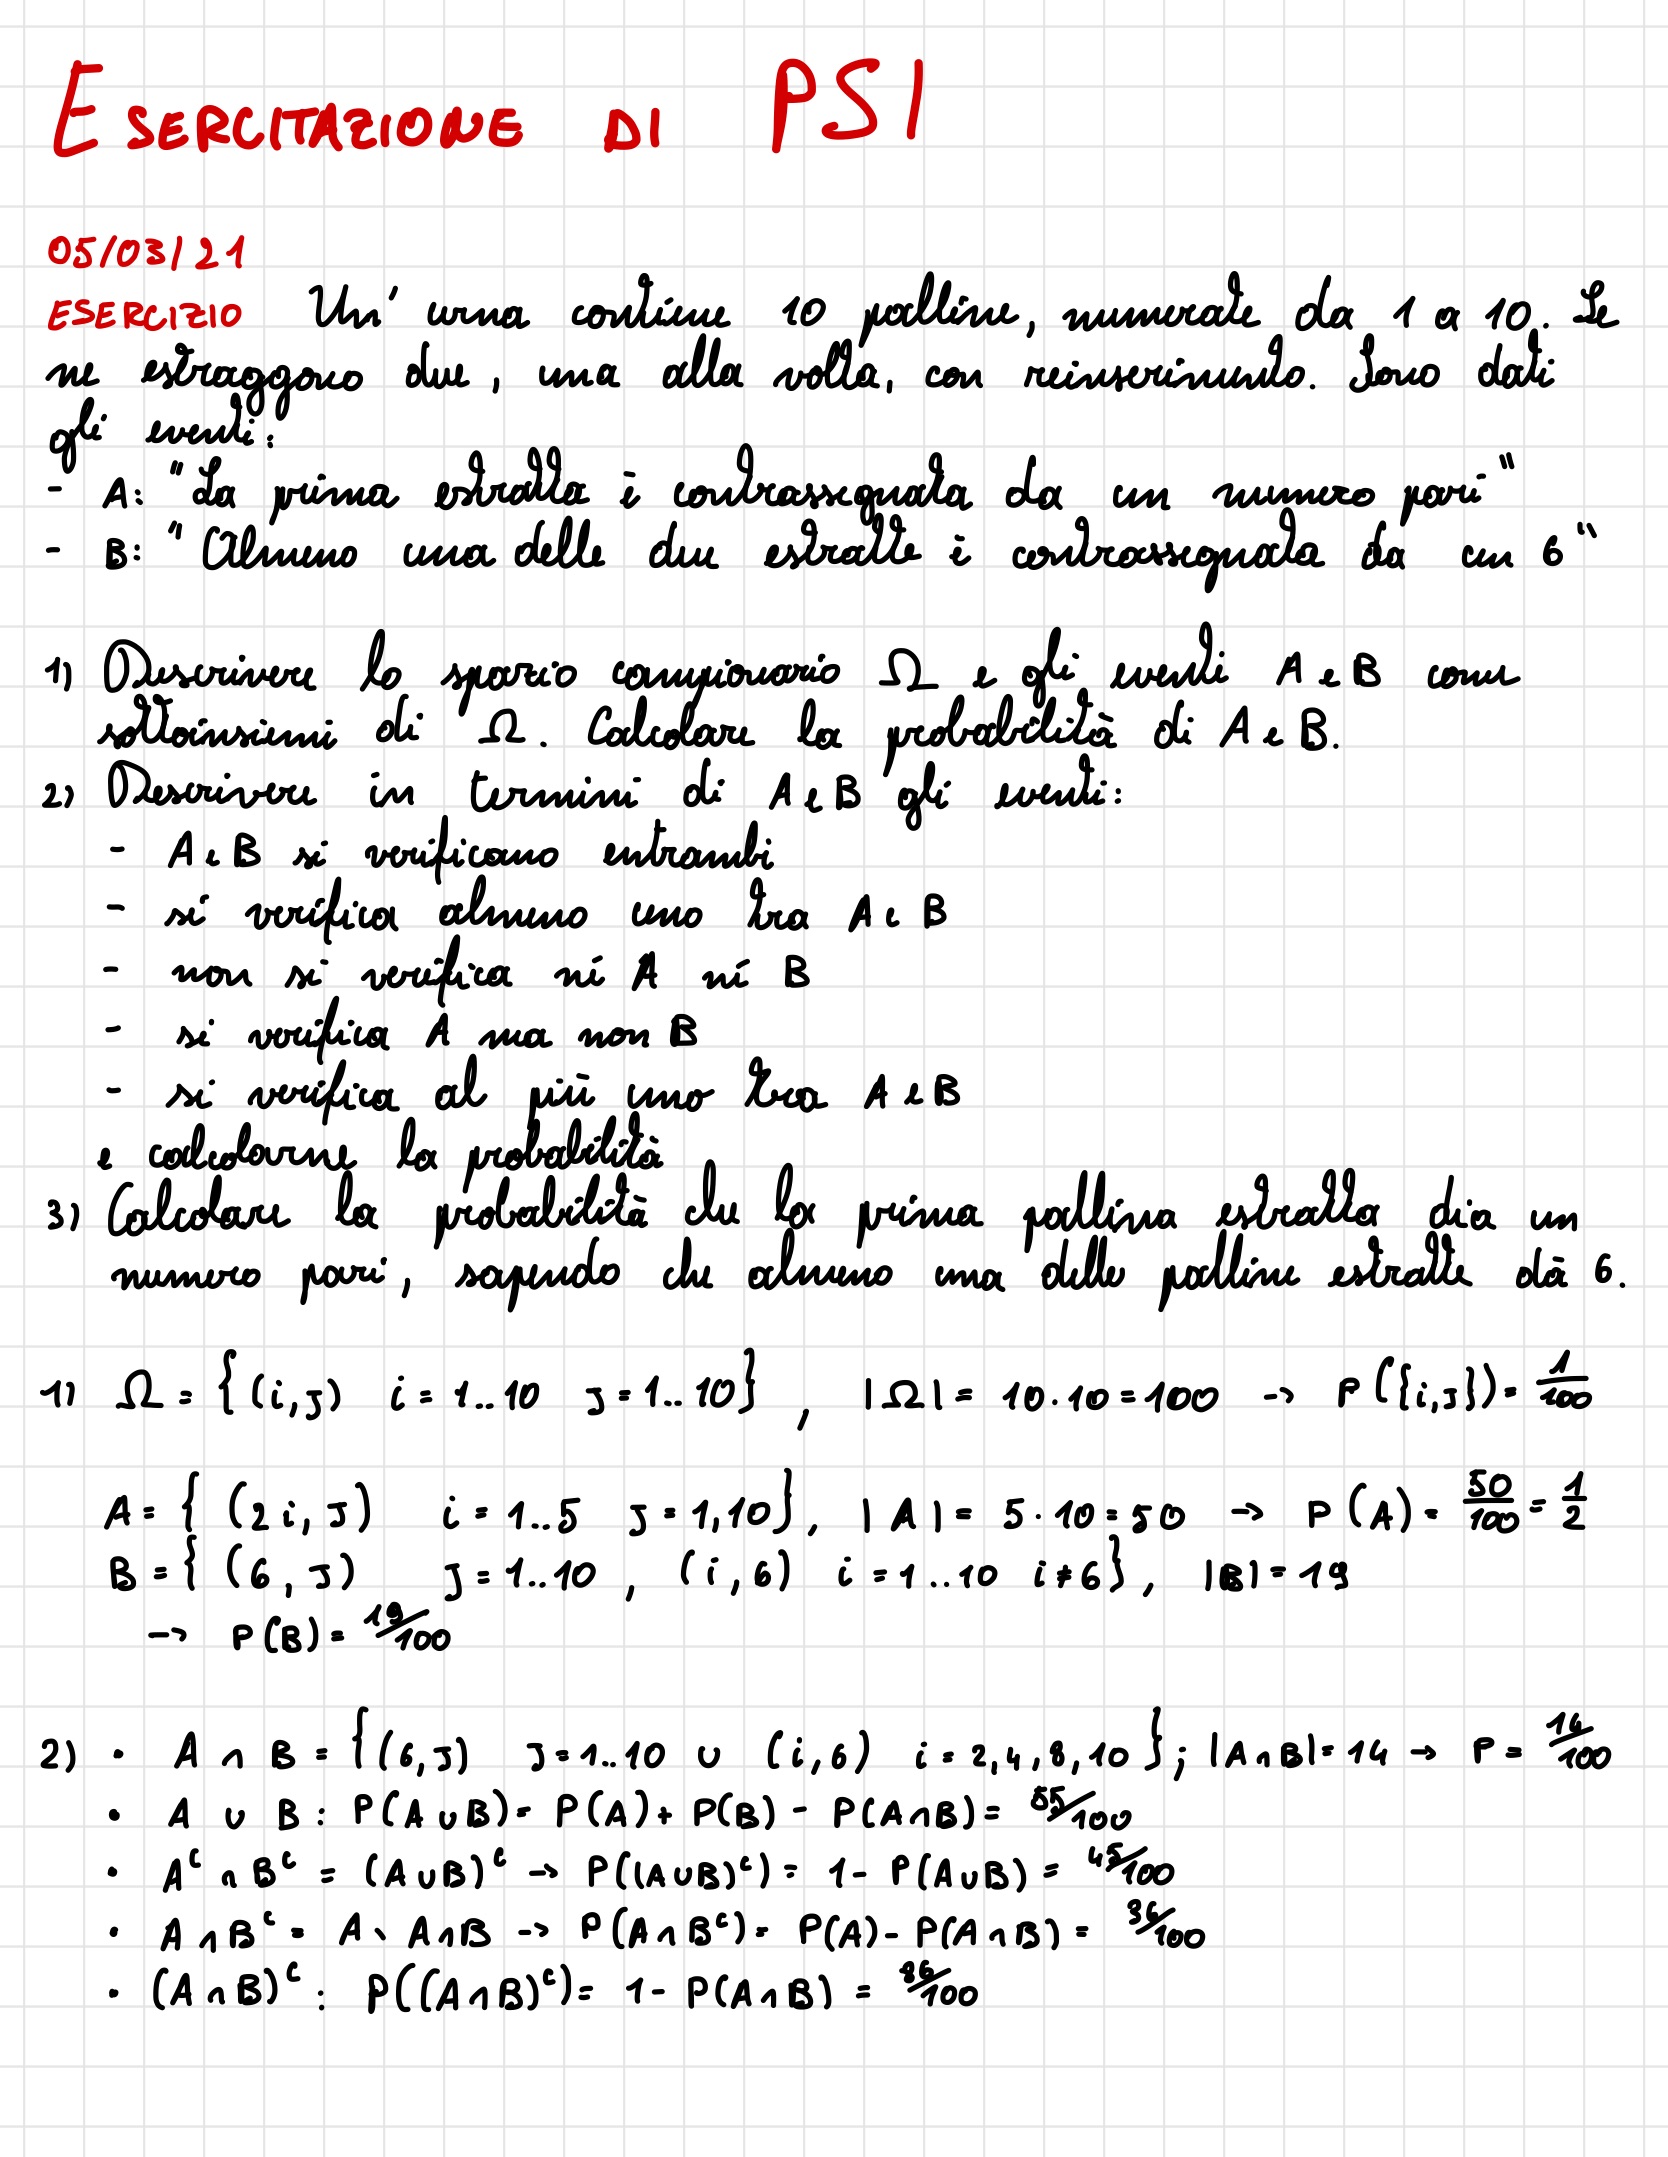 ESERCITAZIONE DI PSI
05/03/21
ESERCIZIO Un' urna contiene 10 palline, numerate da 1 a 10. Se
ne estraggono due, una alla volta, con reinserimento. Sono dati
gli eventi:
- A: "La prima estratta è contrassegnata da un numero pari"
- B: "Almeno una delle due estratte è contrassegnata da un 6"
1) Descrivere lo spazio campionario Ω e gli eventi A e B come
sottoinsiemi di Ω. Calcolare la probabilità di A e B.
2) Descrivere in termini di A e B gli eventi:
- A e B si verificano entrambi
- si verifica almeno uno tra A e B
- non si verifica né A né B
- si verifica A ma non B
- si verifica al più uno tra A e B
e calcolarne la probabilità
3) Calcolare la probabilità che la prima pallina estratta dia un
numero pari, sapendo che almeno una delle palline estratte dà 6.
1) Ω = {(i,J) i = 1..10 J = 1..10} , |Ω| = 10·10 = 100 → P({i,J}) = 1/100
A = { (2i, J) i = 1..5 J = 1,10}, |A| = 5·10 = 50 → P(A) = 50/100 = 1/2
B = { (6, J) J = 1..10 , (i,6) i = 1..10 i ≠ 6}, |B| = 19
→ P(B) = 19/100
2) • A ∩ B = {(6,J) J = 1..10 ∪ (i,6) i = 2,4,8,10}; |A∩B| = 14 → P = 14/100
• A ∪ B : P(A∪B) = P(A) + P(B) - P(A∩B) = 55/100
• Aᶜ ∩ Bᶜ = (A∪B)ᶜ → P((A∪B)ᶜ) = 1 - P(A∪B) = 45/100
• A ∩ Bᶜ = A \ A∩B → P(A∩Bᶜ) = P(A) - P(A∩B) = 36/100
• (A∩B)ᶜ : P((A∩B)ᶜ) = 1 - P(A∩B) = 86/100